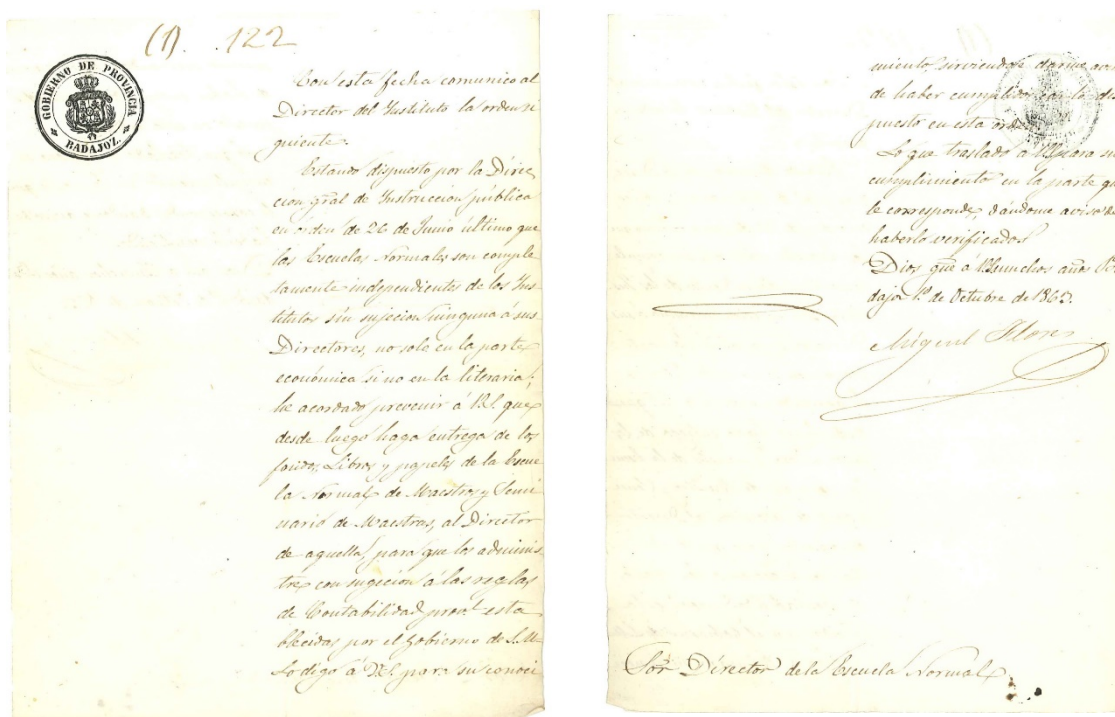 (1). 122
GOBIERNO DE PROVINCIA
BADAJOZ.
Con esta fecha comunico al
Director del Instituto la orden si
guiente.
Estando dispuesto por la Direc
cion gral de Instruccion pública
en orden de 26 de Junio último que
las Escuelas Normales son comple
tamente independientes de los Ins
titutos sin sujecion ninguna á sus
Directores, no solo en la parte
económica si no en la literaria;
he acordado prevenir á V.S. que
desde luego haga entrega de los
fondos, Libros y papeles de la Escue
la Normal de Maestros y Semi
nario de Maestras, al Director
de aquella, para que los adminis
tre con sugecion á las reglas
de Contabilidad provl. esta
blecidas por el Gobierno de S.M.
Lo digo á V.S. para su conoci
miento, sirviendose darme avi
de haber cumplido con lo dis
puesto en esta orden.
Lo que traslado á V. para su
cumplimiento en la parte que
le corresponde, dándome aviso de
haberlo verificado.
Dios gue á V. muchos años Ba
dajoz 1º de Octubre de 1863.
Miguel Flores
Sor. Director de la Escuela Normal